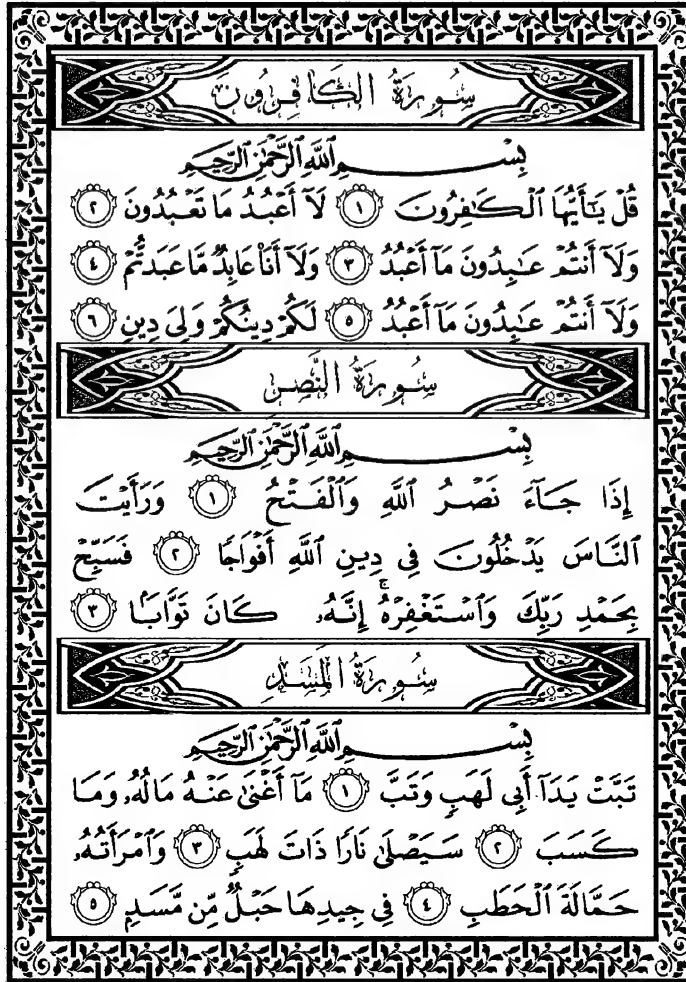 سُورَةُ الكَافِرُونَ
بِسْمِ ٱللَّهِ ٱلرَّحْمَٰنِ ٱلرَّحِيمِ
قُلْ يَٰٓأَيُّهَا ٱلْكَٰفِرُونَ ١ لَآ أَعْبُدُ مَا تَعْبُدُونَ ٢
وَلَآ أَنتُمْ عَٰبِدُونَ مَآ أَعْبُدُ ٣ وَلَآ أَنَا۠ عَابِدٌ مَّا عَبَدتُّمْ ٤
وَلَآ أَنتُمْ عَٰبِدُونَ مَآ أَعْبُدُ ٥ لَكُمْ دِينُكُمْ وَلِىَ دِينِ ٦
سُورَةُ النَّصْرِ
بِسْمِ ٱللَّهِ ٱلرَّحْمَٰنِ ٱلرَّحِيمِ
إِذَا جَآءَ نَصْرُ ٱللَّهِ وَٱلْفَتْحُ ١ وَرَأَيْتَ
ٱلنَّاسَ يَدْخُلُونَ فِى دِينِ ٱللَّهِ أَفْوَاجًا ٢ فَسَبِّحْ
بِحَمْدِ رَبِّكَ وَٱسْتَغْفِرْهُ ۚ إِنَّهُۥ كَانَ تَوَّابًۢا ٣
سُورَةُ المَسَدِ
بِسْمِ ٱللَّهِ ٱلرَّحْمَٰنِ ٱلرَّحِيمِ
تَبَّتْ يَدَآ أَبِى لَهَبٍ وَتَبَّ ١ مَآ أَغْنَىٰ عَنْهُ مَالُهُۥ وَمَا
كَسَبَ ٢ سَيَصْلَىٰ نَارًا ذَاتَ لَهَبٍ ٣ وَٱمْرَأَتُهُۥ
حَمَّالَةَ ٱلْحَطَبِ ٤ فِى جِيدِهَا حَبْلٌ مِّن مَّسَدٍۭ ٥